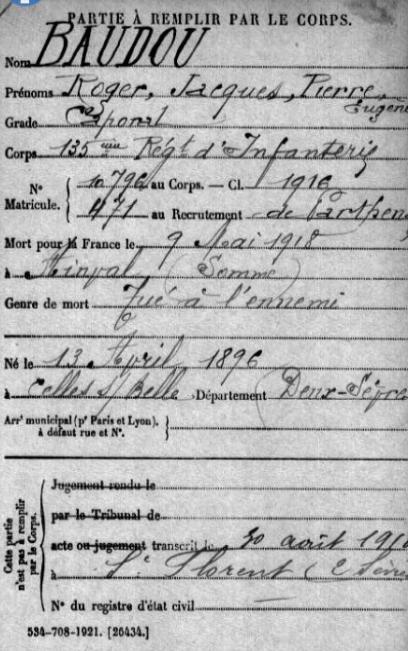 PARTIE À REMPLIR PAR LE CORPS.
Nom BAUDOU
Prénoms Roger, Jacques, Pierre,
Eugène
Grade Caporal
Corps 135ème Régt d'Infanterie
N° Matricule. { 10796 au Corps. — Cl. 1916
471 au Recrutement de Parthenay
Mort pour la France le 9 Mai 1918
à (Somme)
Genre de mort Tué à l'ennemi
Né le 13 Avril 1896
à Celles s/ Belle Département Deux-Sèvres
Arrt municipal (pr Paris et Lyon),
à défaut rue et N°.
Cette partie n'est pas à remplir par le Corps.
Jugement rendu le
par le Tribunal de
acte ou jugement transcrit le 20 août
à St Florent (2 Sèvres
N° du registre d'état civil
534-708-1921. [26434.]